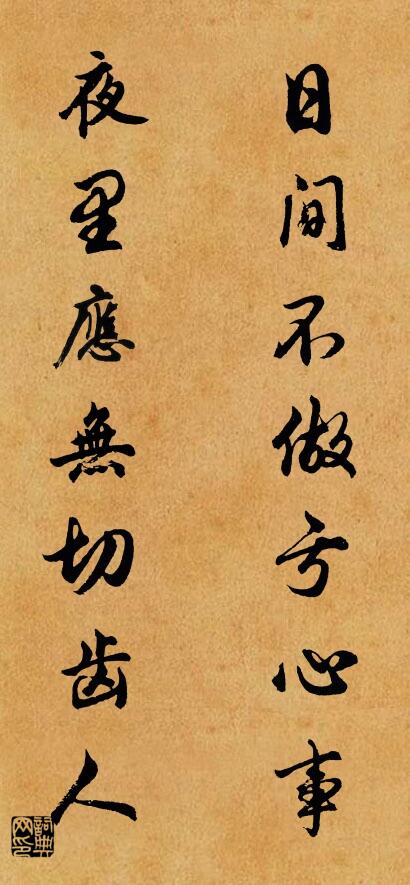 日间不做亏心事
夜里應無切齿人
詞典网印